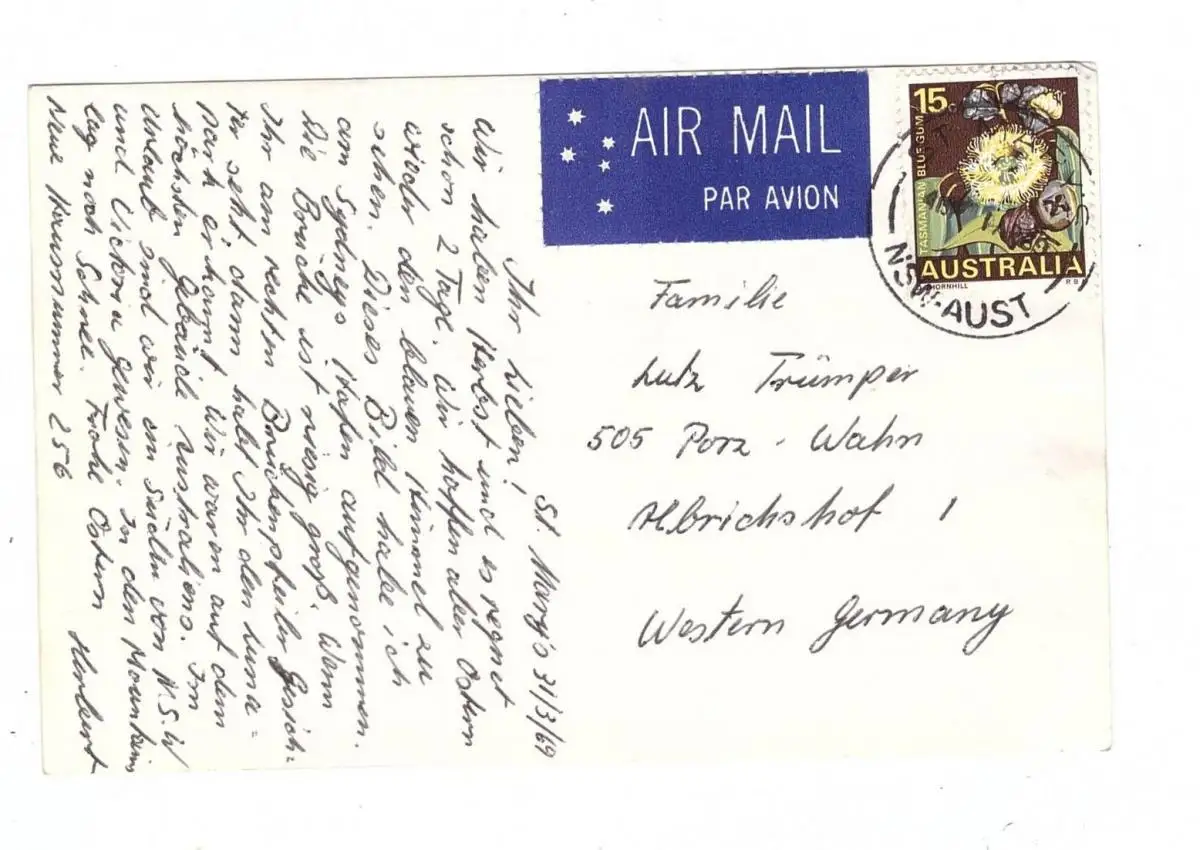 AIR MAIL
PAR AVION
15c
TASMANIAN BLUE GUM
AUSTRALIA
THORNHILL
R B A
N.S.W-AUST
St. Mary's 31/3/69
Ihr Lieben!
Wir haben Herbst und es regnet
schon 2 Tage. Wir hoffen aber Ostern
wieder den blauen Himmel zu
sehen. Dieses Bild habe ich
am Sydneys Hafen aufgenommen.
Die Brücke ist riesig groß. Wenn
Ihr am rechten Brückenpfeiler Gesich=
ter seht, dann habt Ihr den Luna=
park erkannt. Wir waren auf dem
höchsten Gebäude Australiens. Im
Urlaub sind wir im Süden von N.S.W
und Victoria gewesen. In den Mountains
lag noch Schnee. Frohe Ostern Herbert
Neue Hausnummer 256
Familie
Lutz Trümper
505 Porz - Wahn
Albrichshof 1
Western Germany